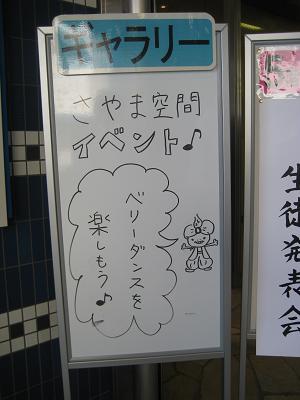 ギャラリー
さやま空間
イベント♪
ベリーダンスを
楽しもう♪
生徒発表会